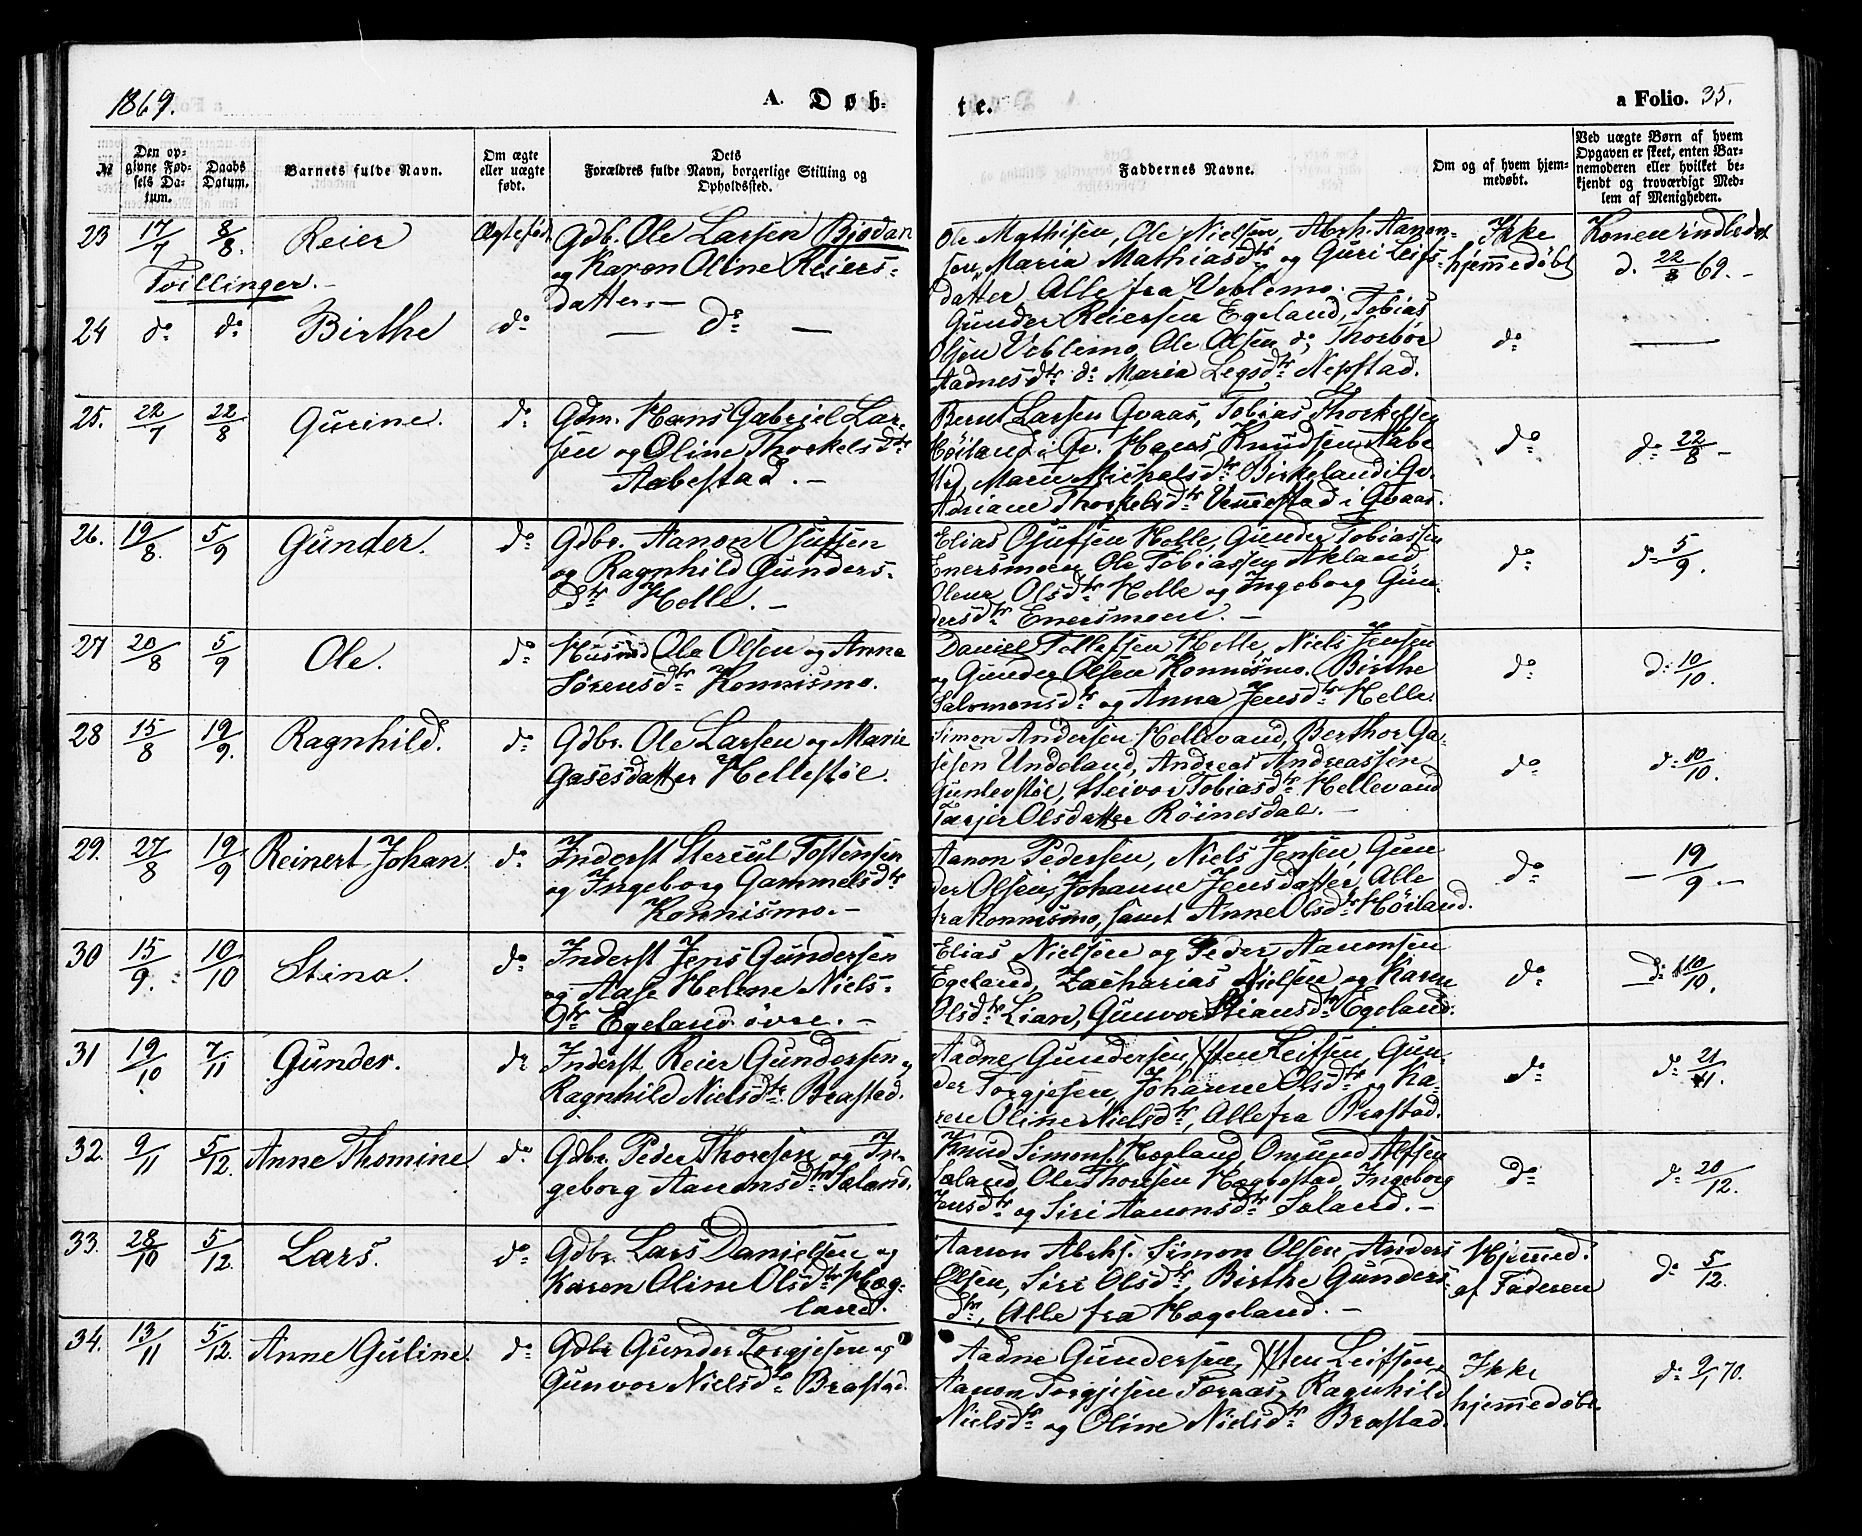 1869.
A. Døb-
te.
a Folio. 35.
№
Den op-
givne Fød-
sels Da-
tum.
Daabs
Datum.
Barnets fulde Navn.
Om ægte
eller uægte
født.
Dets
Forældres fulde Navn, borgerlige Stilling og
Opholdssted.
Faddernes Navne.
Om og af hvem hjem-
medøbt.
Ved uægte Børn af hvem
Opgaven er skeet, enten Bar-
nemoderen eller hvilket be-
kjendt og troværdigt Med-
lem af Menigheden.
23 17/7 8/8. Reier Ægtefød
Tvillinger.-
Gdb. Ole Larsen Bjødan
og Karen Oline Reiers-
datter.-
Ole Mathisen, Ole Nielsen, Abrh. Aanon-
sen, Maria Mathiasdtr og Guri Leifs-
datter Alle fra Veblemo.
Ikke
hjemmedøbt
Konen indledet
d. 22/8 69.-
24 do do Birthe do
— do —
Gunder Reiersen Egeland, Tobias
Olsen Veblemo, Ole Olsen do, Thorbør
Aadnesdtr do Maria Legsdtr Nepstad.
do
—
25. 22/7 22/8 Gurine. do
Gdm. Hans Gabriel Lar-
sen og Oline Thorkelsdtr
Aabestad.-
Bernt Larsen Qvaas, Tobias Thorkelsen
Høiland i Qv. Hans Knudsen Aabe
sted, Maren Michalsdtr Birkeland i Qv.
Adriane Thorkelsdtr Vennestad i Qvaas.
do
do 22/8 -
26. 19/8. 5/9 Gunder. do
Gdbr. Aanon Olufsen
og Ragnhild Gunders-
dtr Helle.-
Elias Olufsen Helle, Gunder Tobiassen
Enersmoen Ole Tobiassen Akland,
Olene Olsdtr Helle og Ingeborg Gun-
dersdtr Enersmoen.-
do
do 5/9.
27 20/8 5/9 Ole. do
Husmd Ole Olsen og Anna
Sørensdtr Konnismo.
Daniel Tellefsen Helle, Niels Jensen
og Gunder Olsen Konnismo. Birthe
Salomonsdtr og Anna Jensdtr Helle.
do
do 10/10.
28 15/8 19/9. Ragnhild. do
Gdbr. Ole Larsen og Marie
Gasesdatter Hellestøl.
Simon Andersen Hellevand, Berthor Ga-
sesen Undeland, Andreas Andreassen
Gunlevstøl, Steivor Tobiasdtr Hellevand
Tarjer Olsdatter Røinesdal.-
do
do 10/10.
29. 27/8 19/9 Reinert Johan. do
Inderst Tostensen
og Ingeborg Gammelsdtr
Konnismo.-
Aanon Pedersen, Niels Jensen, Gun
der Olsen, Johanne Jensdatter, Alle
fra Konnismo, samt Anne Olsdtr Høiland.
do
- 19/9.-
30 15/9. 10/10 Stina. do
Inderst Jens Gundersen
og Aase Helene Niels-
dtr Egeland øvre.-
Elias Nielsen og Peder Aanonsen
Egeland, Zacharias Nielsen og Karen
Olsdtr Lian, Gunvor Stiansdtr Egeland.
do
do 10/10.
31 19/10 7/11 Gunder. do
Inderst, Reier Gundersen og
Ragnhild Nielsdtr Brastad.
Aadne Gundersen, Sten Leifsen, Gun-
der Torgjesen, Johanne Olsdtr og Ka-
ren Oline Nielsdtr, Alle fra Brastad.
do
do 21/11.
32. 9/11 5/12. Anne Thomine do
Gdbr. Peder Thoresen og In-
geborg Aanonsdtr Søland.
Knud Simons. Hægland, Omund Alfsen
Søland, Ole Thoresen Hægbostad, Ingeborg
Jensdtr og Siri Aanonsdtr Søland.-
do
do 20/12.
33. 28/10 5/12. Lars. do
Gdbr Lars Danielsen og
Karen Oline Olsdtr Hæg-
land.
Aanon Abrhs. Simon Olsen, Anders
Olsen, Siri Olsdtr, Birthe Gunders-
dtr, Alle fra Hægeland.-
Hjemmed.
af Faderen
do 5/12.
34. 13/11 5/12. Anne Guline. do
Gdbr Gunder Torgjesen og
Gunvor Nielsdtr Brastad.
Aadne Gundersen, Sten Leifsen,
Aanon Torgjesen Færaas, Ragnhild
Nielsdtr og Oline Nielsdtr Brastad.
Ikke
hjemmedøbt.
do 9/1 70.